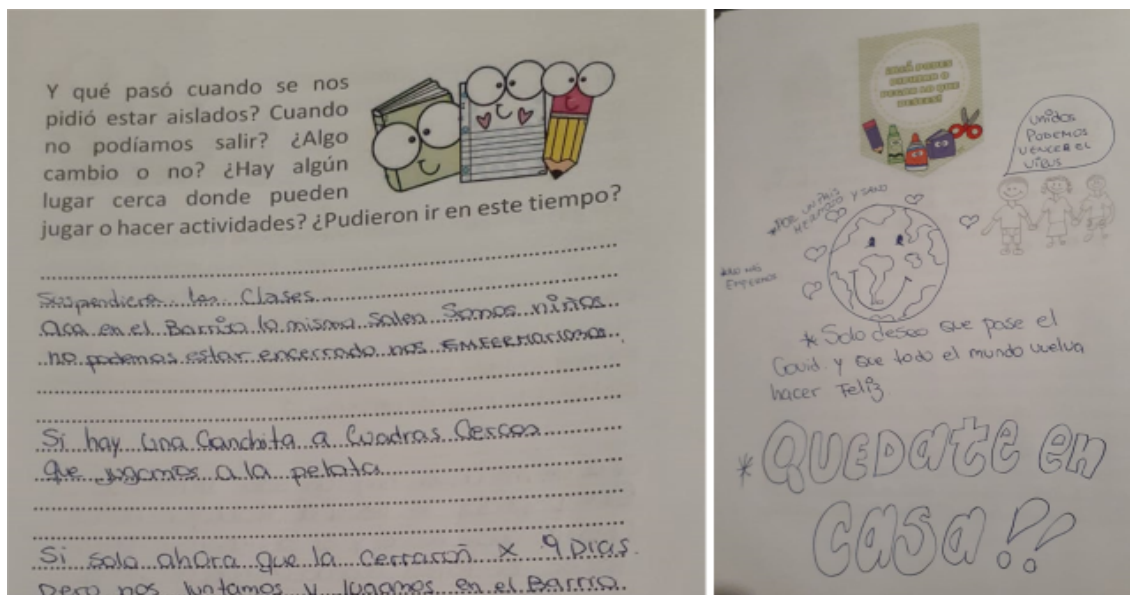 Y qué pasó cuando se nos
pidió estar aislados? Cuando
no podíamos salir? ¿Algo
cambio o no? ¿Hay algún
lugar cerca donde pueden
jugar o hacer actividades? ¿Pudieron ir en este tiempo?
Suspendieron las Clases
Aca en el Barrio lo mismo Salen Somos niños
no podemos estar encerrado nos EMFERMARIAMOS
Si hay una Canchita a Cuadras Cercas
que jugamos a la pelota
Si solo ahora que la Cerraron x 9 Dias
Pero nos Juntamos y Jugamos en el Barrio.
ACÁ PODES
DIBUJAR O
PEGAR LO QUE
DESEES!
Unidos
PODEMOS
VENCER EL
VIRUS
*POR UN PAIS
HERMOSO Y SANO
*NO MAS
* Solo deseo que pase el
Covid. y que todo el mundo vuelva
hacer Feliz
* QUEDATE EN
CASA!!